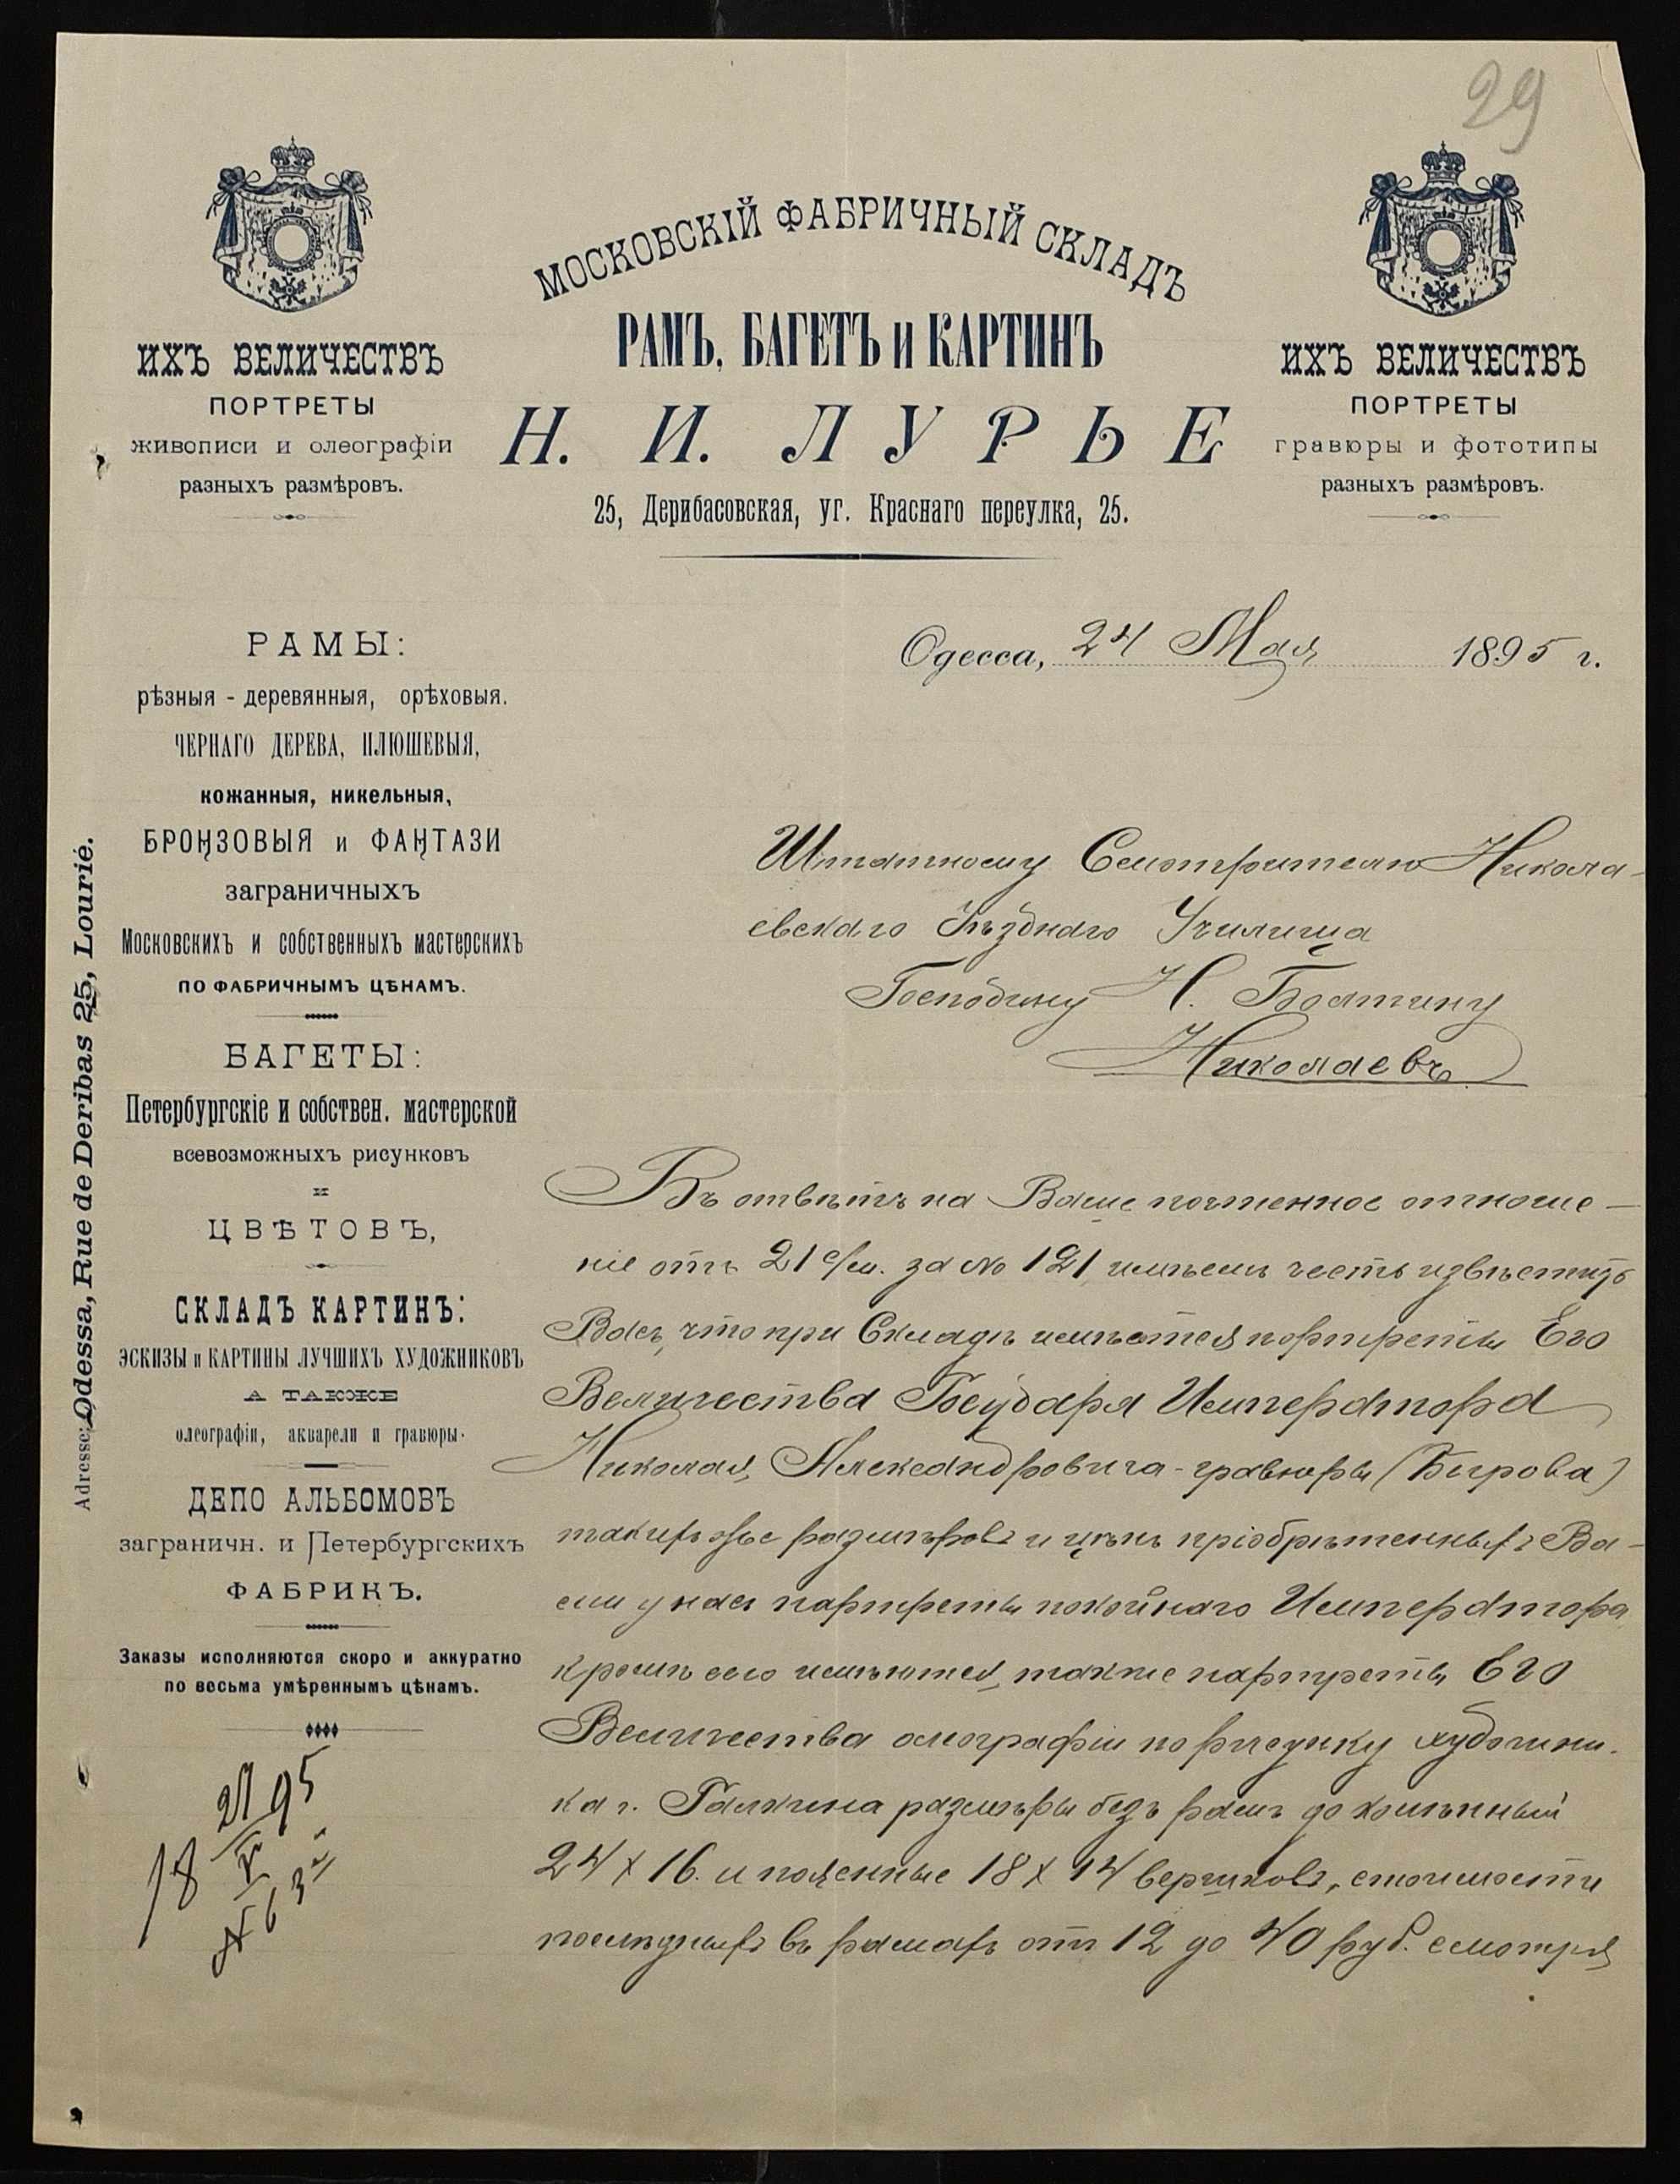 29
МОСКОВСКІЙ ФАБРИЧНЫЙ СКЛАДЪ
РАМЪ, БАГЕТЪ и КАРТИНЪ
Н. И. ЛУРЬЕ
25, Дерибасовская, уг. Краснаго переулка, 25.
ИХЪ ВЕЛИЧЕСТВЪ
ПОРТРЕТЫ
живописи и олеографіи
разныхъ размѣровъ.
ИХЪ ВЕЛИЧЕСТВЪ
ПОРТРЕТЫ
гравюры и фототипы
разныхъ размѣровъ.
Adresse: Odessa, Rue de Deribas 25, Lourié.
РАМЫ:
рѣзныя - деревянныя, орѣховыя.
ЧЕРНАГО ДЕРЕВА, ПЛЮШЕВЫЯ,
кожанныя, никельныя,
БРОНЗОВЫЯ и ФАНТАЗИ
заграничныхъ
Московскихъ и собственныхъ мастерскихъ
ПО ФАБРИЧНЫМЪ ЦѢНАМЪ.
БАГЕТЫ:
Петербургскіе и собствен. мастерской
всевозможныхъ рисунковъ
и
ЦВѢТОВЪ,
СКЛАДЪ КАРТИНЪ:
ЭСКИЗЫ и КАРТИНЫ ЛУЧШИХЪ ХУДОЖНИКОВЪ
А ТАКЖЕ
олеографіи, акварели и гравюры.
ДЕПО АЛЬБОМОВЪ
заграничн. и Петербургскихъ
ФАБРИКЪ.
Заказы исполняются скоро и аккуратно
по весьма умѣреннымъ цѣнамъ.
18 27/V 95
№ 63
Одесса, 24 Мая 1895 г.
Штатному Смотрителю Никола-
евскаго Уѣзднаго Училища
Господину Н. Боятину
Николаевъ
Въ отвѣтъ на Ваше почтенное отноше-
ніе отъ 21 с/м. за № 121 имѣемъ честь извѣстить
Васъ, что при Складѣ имѣются портреты Его
Величества Государя Императора
Николая Александровича - гравюры (Бырова)
такихъ же размѣровъ и цѣнъ пріобрѣтенныхъ Ва-
ми у насъ портреты покойнаго Императора
кромѣ сего имѣются также портреты Его
Величества олеографіи по рисунку художни-
ка г. Галкина размѣры безъ рамъ до колѣнный
24 х 16. и поясныя 18 х 14 вершковъ, стоимости
послѣднихъ въ рамахъ отъ 12 до 40 руб. смотря